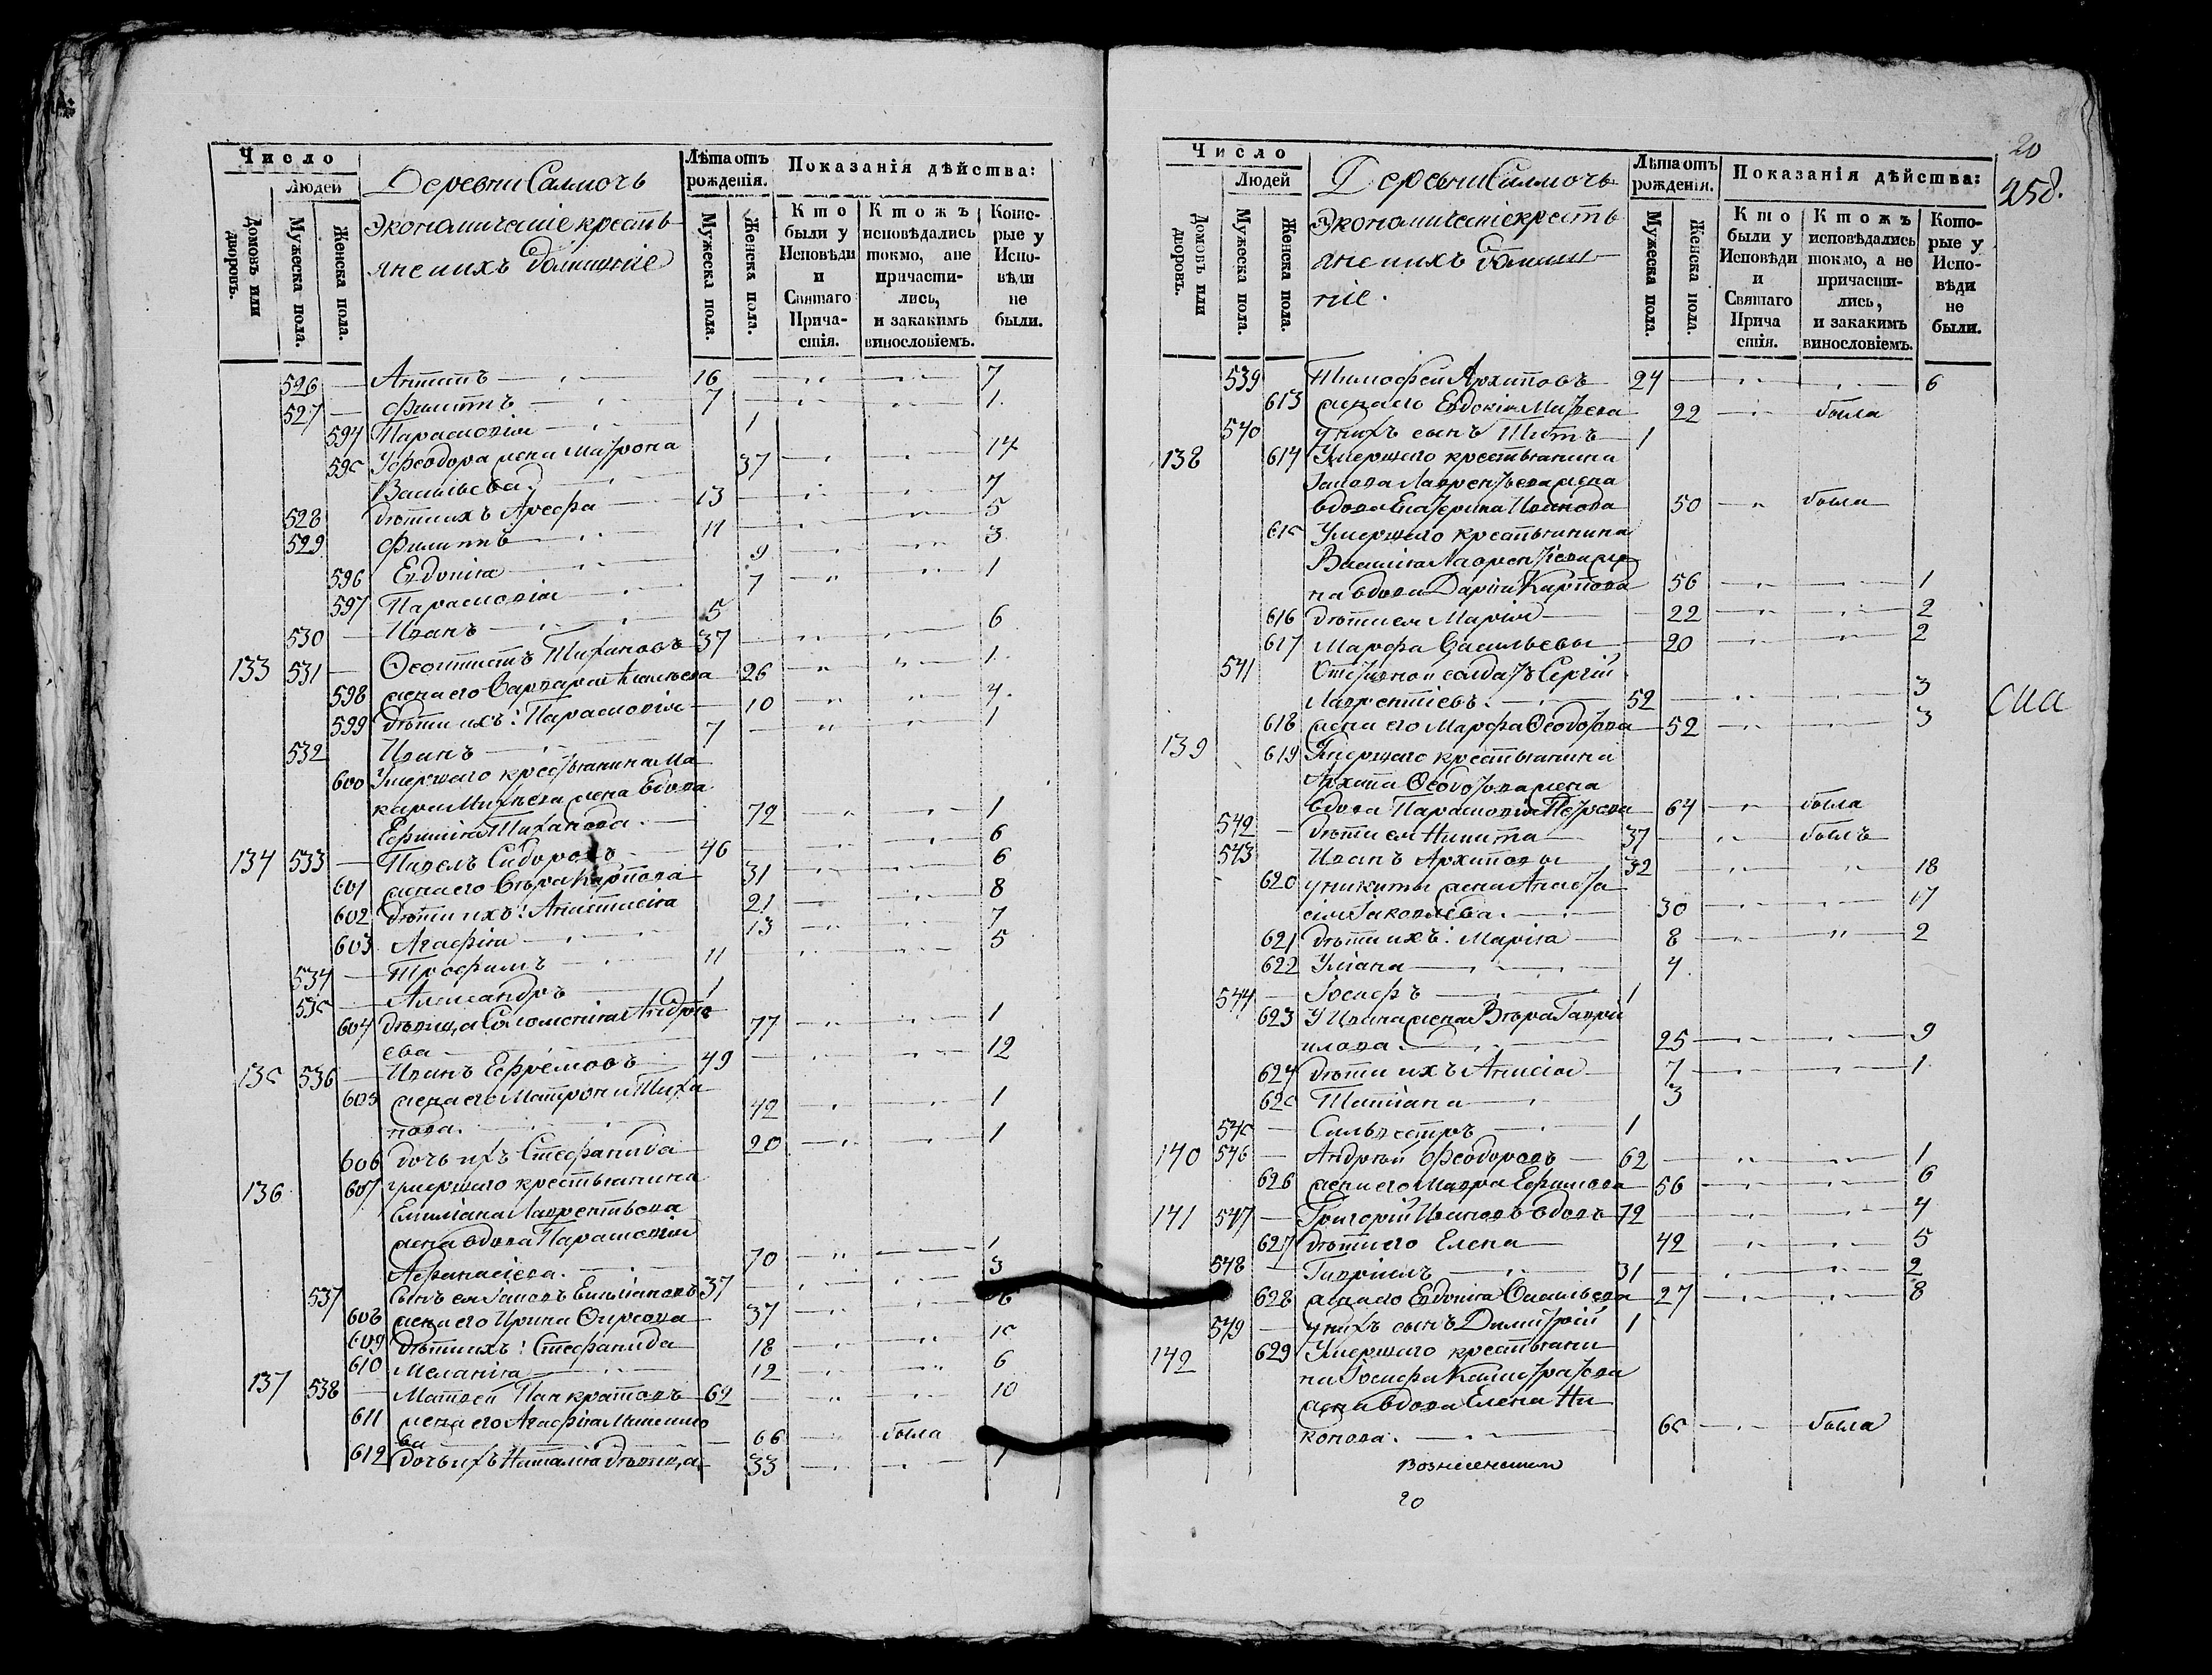 Число
Людей
Домовъ или дворовъ.
Мужеска пола.
Женска пола.
Деревни Салмочь
Экономическіе крестъ
яне и ихъ домашніе
Лѣта отъ рожденія.
Мужеска пола.
Женска пола.
Показанія дѣйства:
Кто были у Исповѣди и Святаго Прича-стія.
Ктожъ исповѣдались токмо, а не причасти-лись, и закакимъ винословіемъ.
Кото-рые у Испо-вѣди не были.
526 16 7
527 Филиппъ 7 1
594 Парасковія 1
595 У Феодора жена Матрона
Васильева 37 14
528 дѣти ихъ Арефа 13 7
529 Филиппъ 11 5
596 Евдокіа 9 3
597 Парасковіа 7 1
530 Иванъ 5
133 531 Ѳеоктистъ Тихановъ 37 6
598 жена его Варвара 26 1
599 дѣти ихъ: Парасковія 10 4
532 Иванъ 7 1
600 Умершаго крестьянина Ма
кара жена вдова
Тиханова 72 1
134 533 Павелъ Сидоровъ 46 6
601 жена его Вѣра Карпова 31 6
602 дѣти ихъ: Анастасіа 21 8
603 Агафіа 13 7
534 Трофимъ 11 5
535 Александръ 1
604 дѣвица Соломоніа Андрѣ
ева 77 1
135 536 Иванъ Ефремовъ 49 12
605 жена его Матрона Тиха
нова 42 1
606 дочь ихъ Стефанида 20 1
136 607 умершаго крестьянина
Емиліана Лаврентьева
жена вдова Парасковіа
Афанасіева 70 1
537 Сынъ ея Іаковъ Емиліановъ 37 3
608 жена его Ирина Ѳирсова 37 6
609 дѣти ихъ: Стефанида 18 15
610 Меланіа 12 6
137 538 Матвей Панкратовъ 62 10
611 жена его Агафіа
ва 66 была
612 дочь ихъ Наталіа дѣвица 33 1
20
258.
Число
Людей
Домовъ или дворовъ.
Мужеска пола.
Женска пола.
Деревни Салмочь
Экономическіе крестъ
яне и ихъ домаш
ніе.
Лѣта отъ рожденія.
Мужеска пола.
Женска пола.
Показанія дѣйства:
Кто были у Исповѣди и Святаго Прича стія.
Ктожъ исповѣдались токмо, а не причасти-лись, и закакимъ винословіемъ.
Кото-рые у Испо-вѣди не были.
539 Тимофей Архиповъ 24 6
613 жена его Евдокіа 22 была
540 у нихъ сынъ Титъ 1
138 614 Умершаго крестьянина
Іакова Лаврентьева жена
вдова Екатерина Иванова 50 была
615 Умершаго крестьянина
Василіа Лаврентіева же
на вдова Даріа Карпова 56 1
616 дѣти ея Маріа 22 2
617 Марфа Васильевы 20 2
541 Отставной солдатъ Сергій
Лаврентіевъ. 52 3
618 жена его Марфа Ѳеодотова 52 3
139 619 Умершаго крестьянина
Архипа Ѳеодотова жена
вдова Парасковіа Петрова 64 была
542 дѣти ея Никита 37 былъ
543 Иванъ Архиповы 32 18
620 у никиты жена Анаста
сіа Іаковлева. 30 17
621 дѣти ихъ: Маріа 8 2
622 Уліана 4
544 Іосифъ 1
623 У Ивана жена Вѣра Гаврі
илова. 25 9
624 дѣти ихъ Анисіа 7 1
625 Татіана 3
545 Сильвестръ 1
140 546 Андрей Феодоровъ 62 1
626 жена его Мавра Ефимова 56 6
141 547 Григорій Ивановъ вдовъ 72 4
627 дѣти его Елена 42 5
548 Гавріилъ 31 2
628 жена его Евдокіа Васильева 27 8
549 у нихъ сынъ Димитрій 1
142 629 Умершаго крестьяни
на Іосифа Калистратова
жена вдова Елена Ни
конова. 65 была
Вознесенской
20